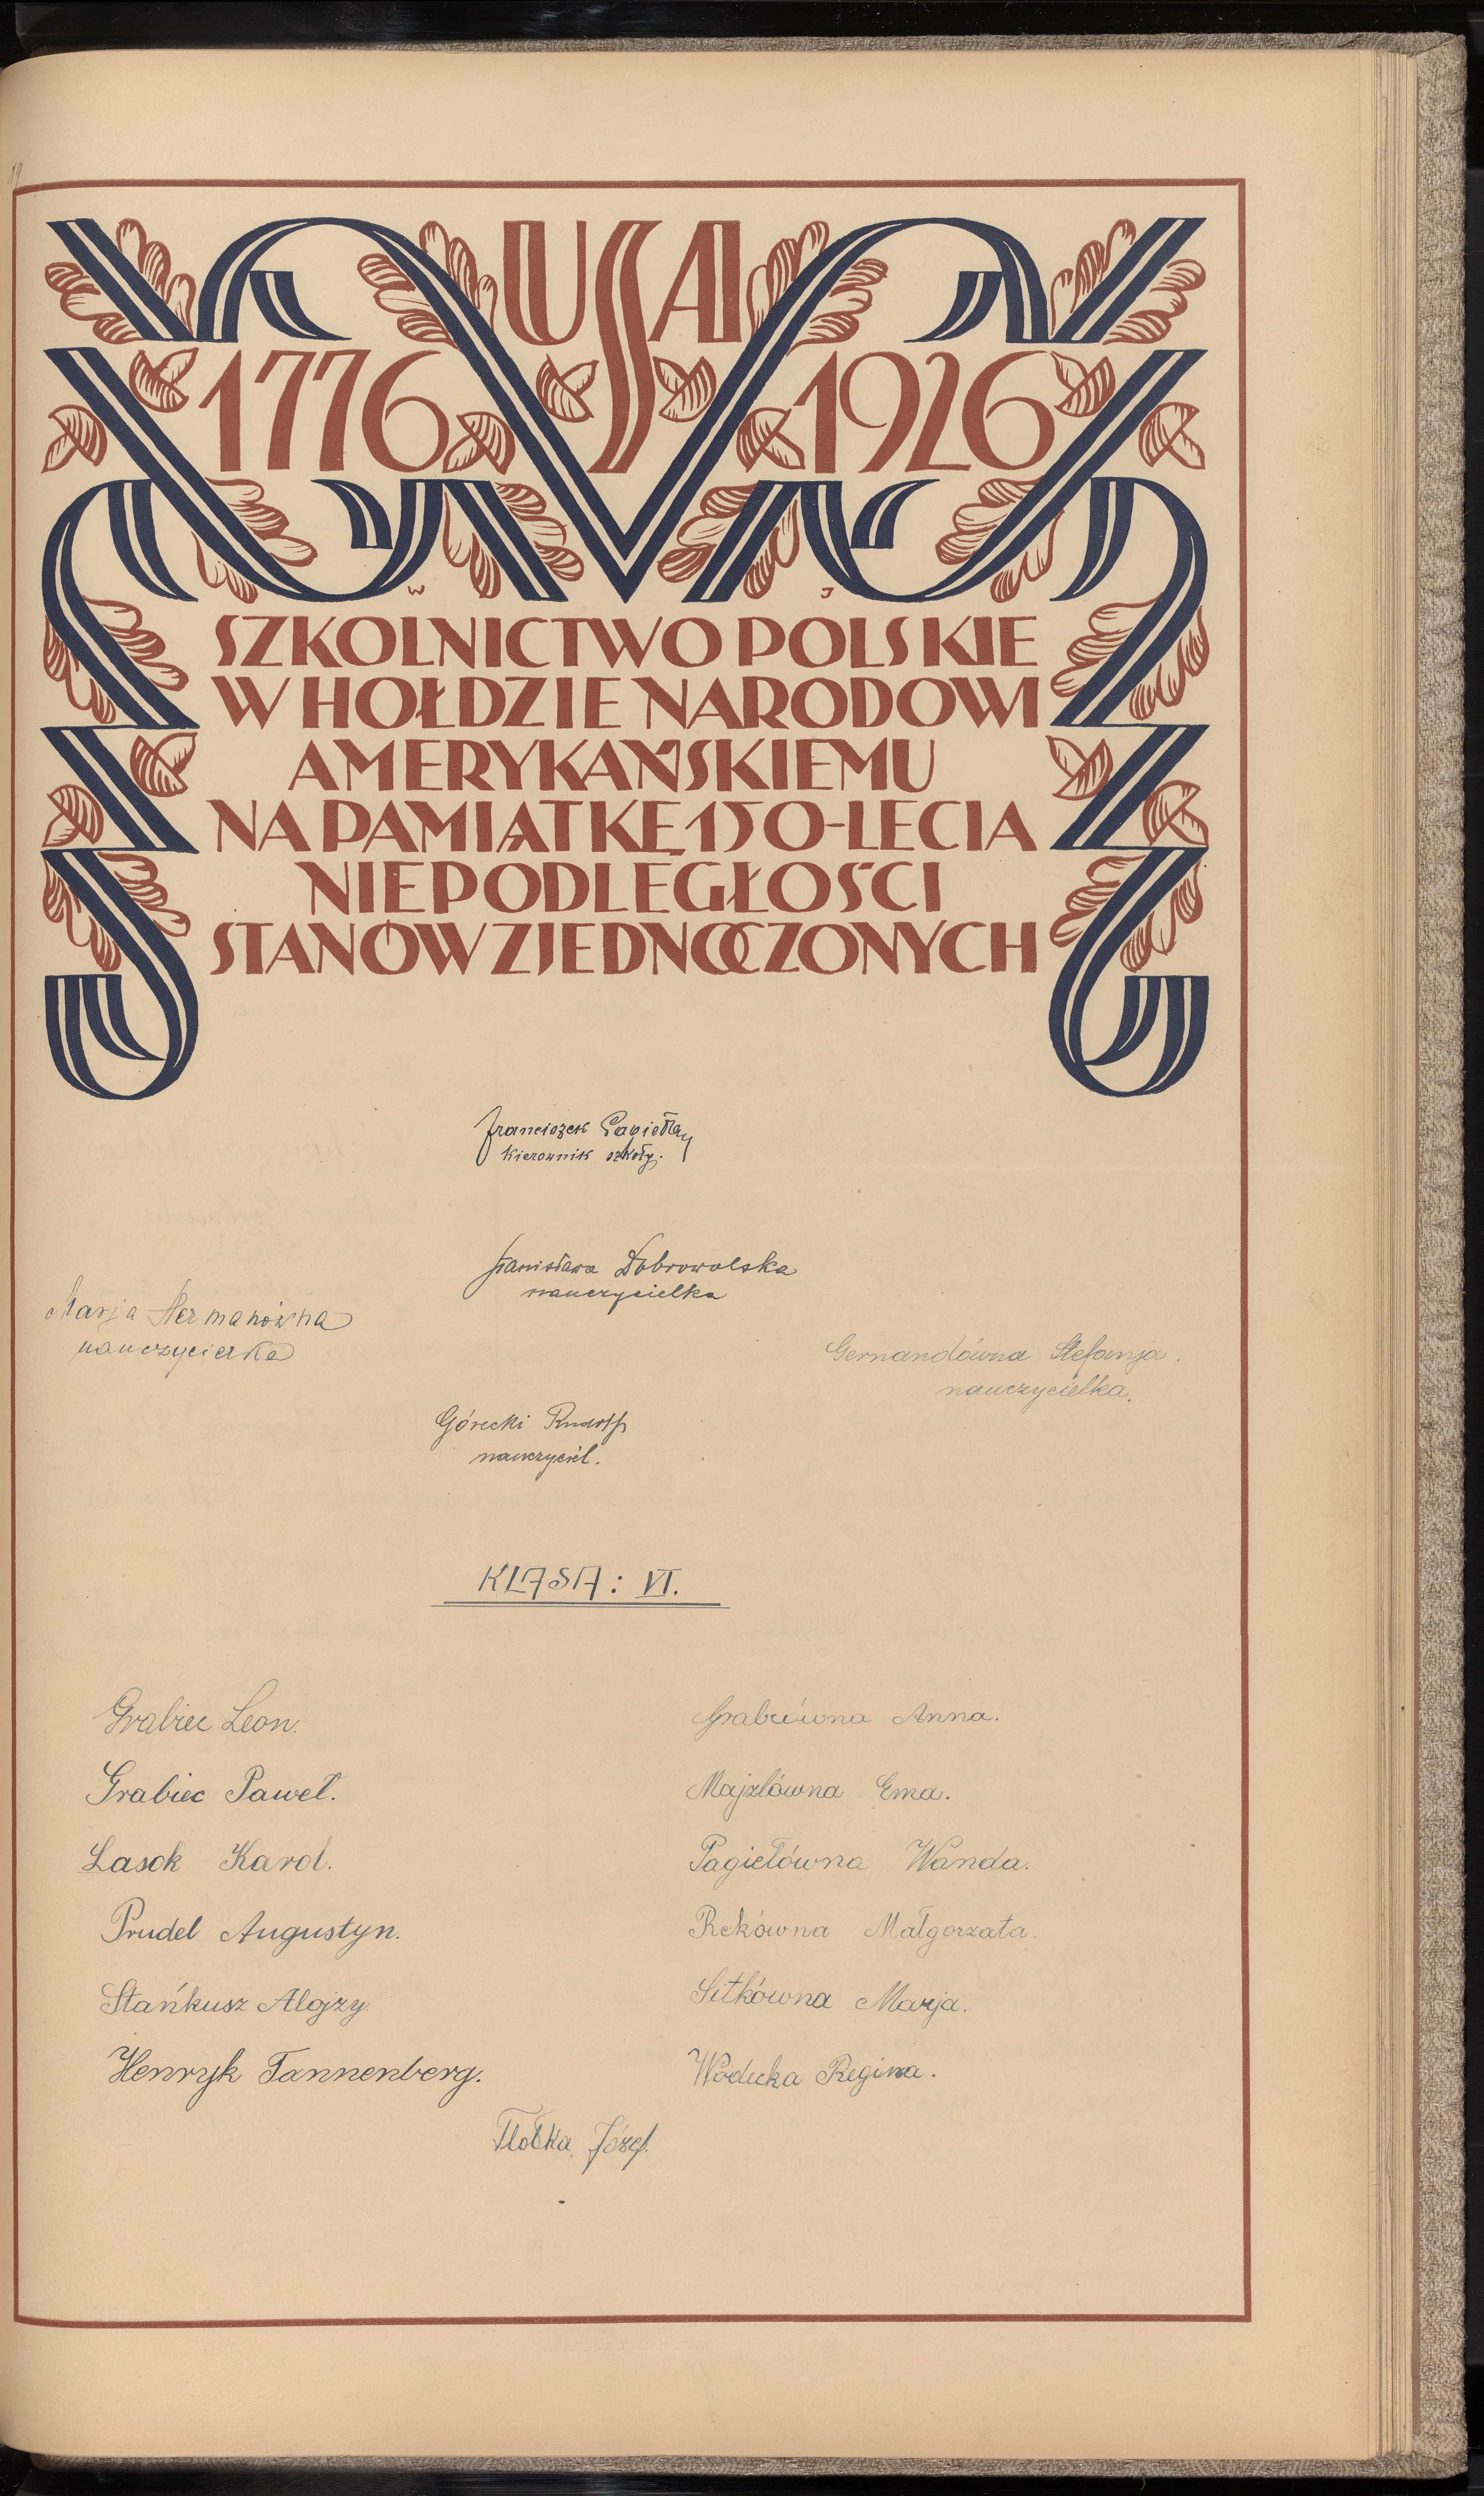 USA
1776 1926
W J
SZKOLNICTWO POLSKIE
W HOŁDZIE NARODOWI
AMERYKAŃSKIEMU
NA PAMIĄTKĘ 150-LECIA
NIEPODLEGŁOŚCI
STANÓW ZJEDNOCZONYCH
Franciszek
kierownik szkoły.
Stanisława Dobrowolska
nauczycielka
Marja Hermanówna
nauczycielka
Gernandówna Stefanja.
nauczycielka.
Górecki Rudolf
nauczyciel.
KLASA: VI.
Grabiec Leon.
Grabiec Paweł.
Lasok Karol.
Prudel Augustyn.
Stańkusz Alojzy
Henryk Tannenberg.
Grabcówna Anna.
Majzlówna Ema.
Pagiełówna Wanda.
Rekówna Małgorzata.
Sitkówna Marja.
Wodecka Regina.
Józef.